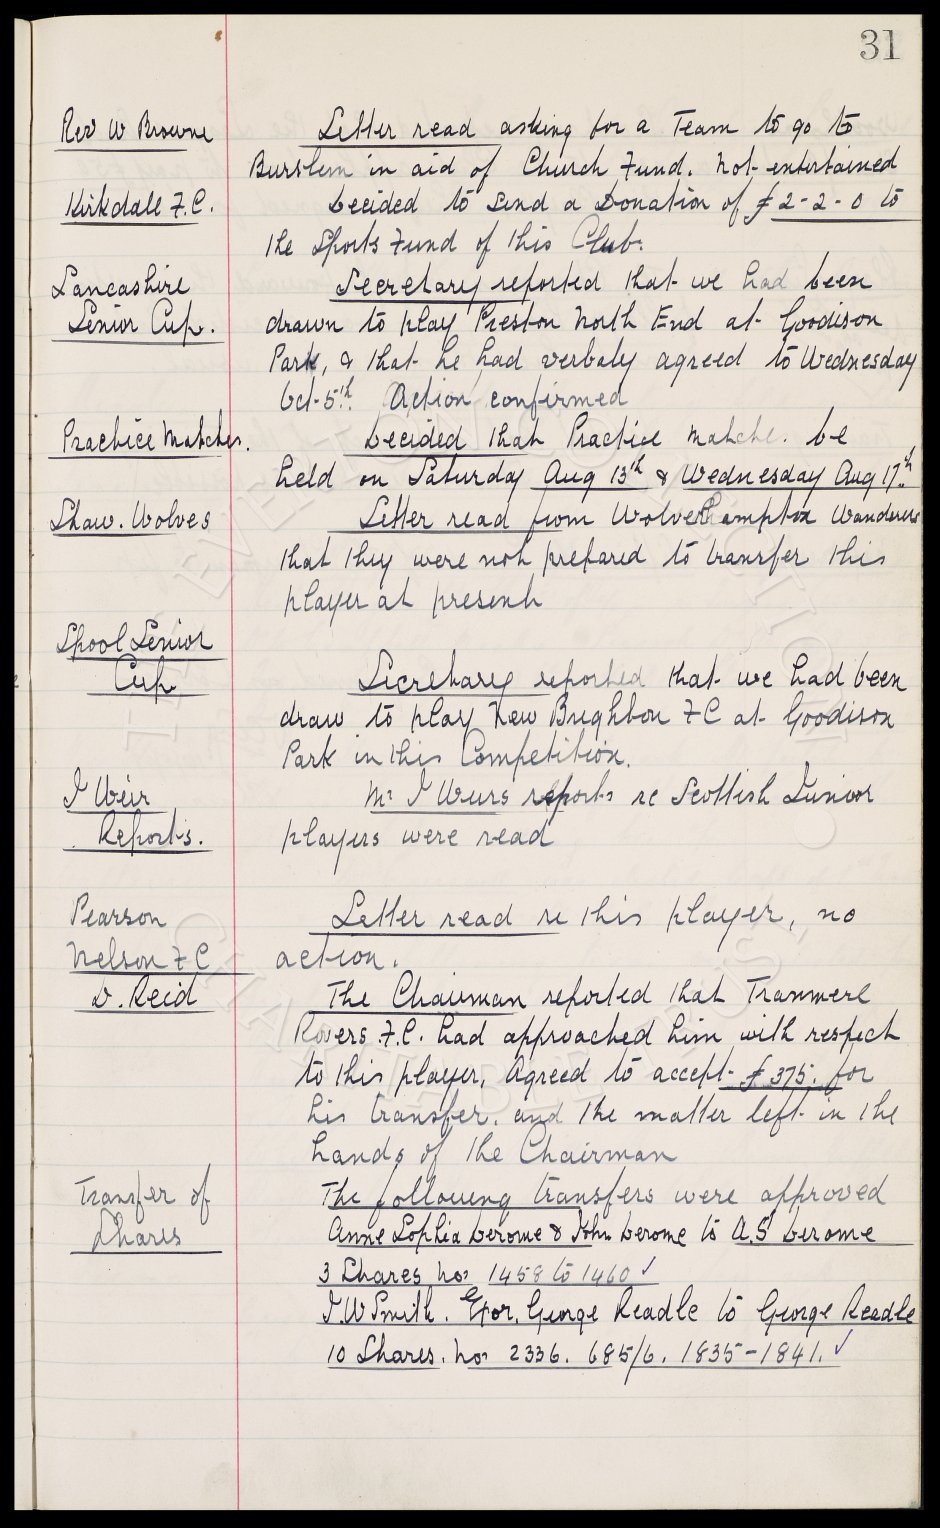 31
Rev W Browne Letter read asking for a Team to go to
Burslem in aid of Church Fund. Not entertained
Kirkdale F.C. Decided to send a Donation of £2-2-0 to
the Sports Fund of this Club.
Lancashire Secretary reported that we had been
Senior Cup. drawn to play Preston North End at Goodison
Park, & that he had verbaly agreed to Wednesday
Oct 5th. Action confirmed
Practice Matches. Decided that Practice Matche. be
held on Saturday Aug 13th & Wednesday Aug 17th.
Shaw. Wolves Letter read from Wolverhampton Wanderers
that they were not prepared to transfer this
player at present
Lpool Senior
Cup Secretary reported that we had been
draw to play New Brighton FC at Goodison
Park in this Competition.
J Weir Mr J Weirs reports re Scottish Junior
Reports. players were read
Pearson Letter read re this player, no
Nelson FC action.
D. Reid The Chairman reported that Tranmere
Rovers F.C. had approached him with respect
to this player, Agreed to accept £375. for
his transfer. and the matter left in the
hands of the Chairman
Transfer of The following transfers were approved
Shares Anne Sophia Derome & John Derome to A.S Derome
3 Shares Nos 1458 to 1460 ✓
J.W Smith. Exor. George Readle to George Readle
10 Shares. Nos 2336. 685/6. 1835-1841. ✓
THE EVERTON COLLECTION
CHARITABLE TRUST